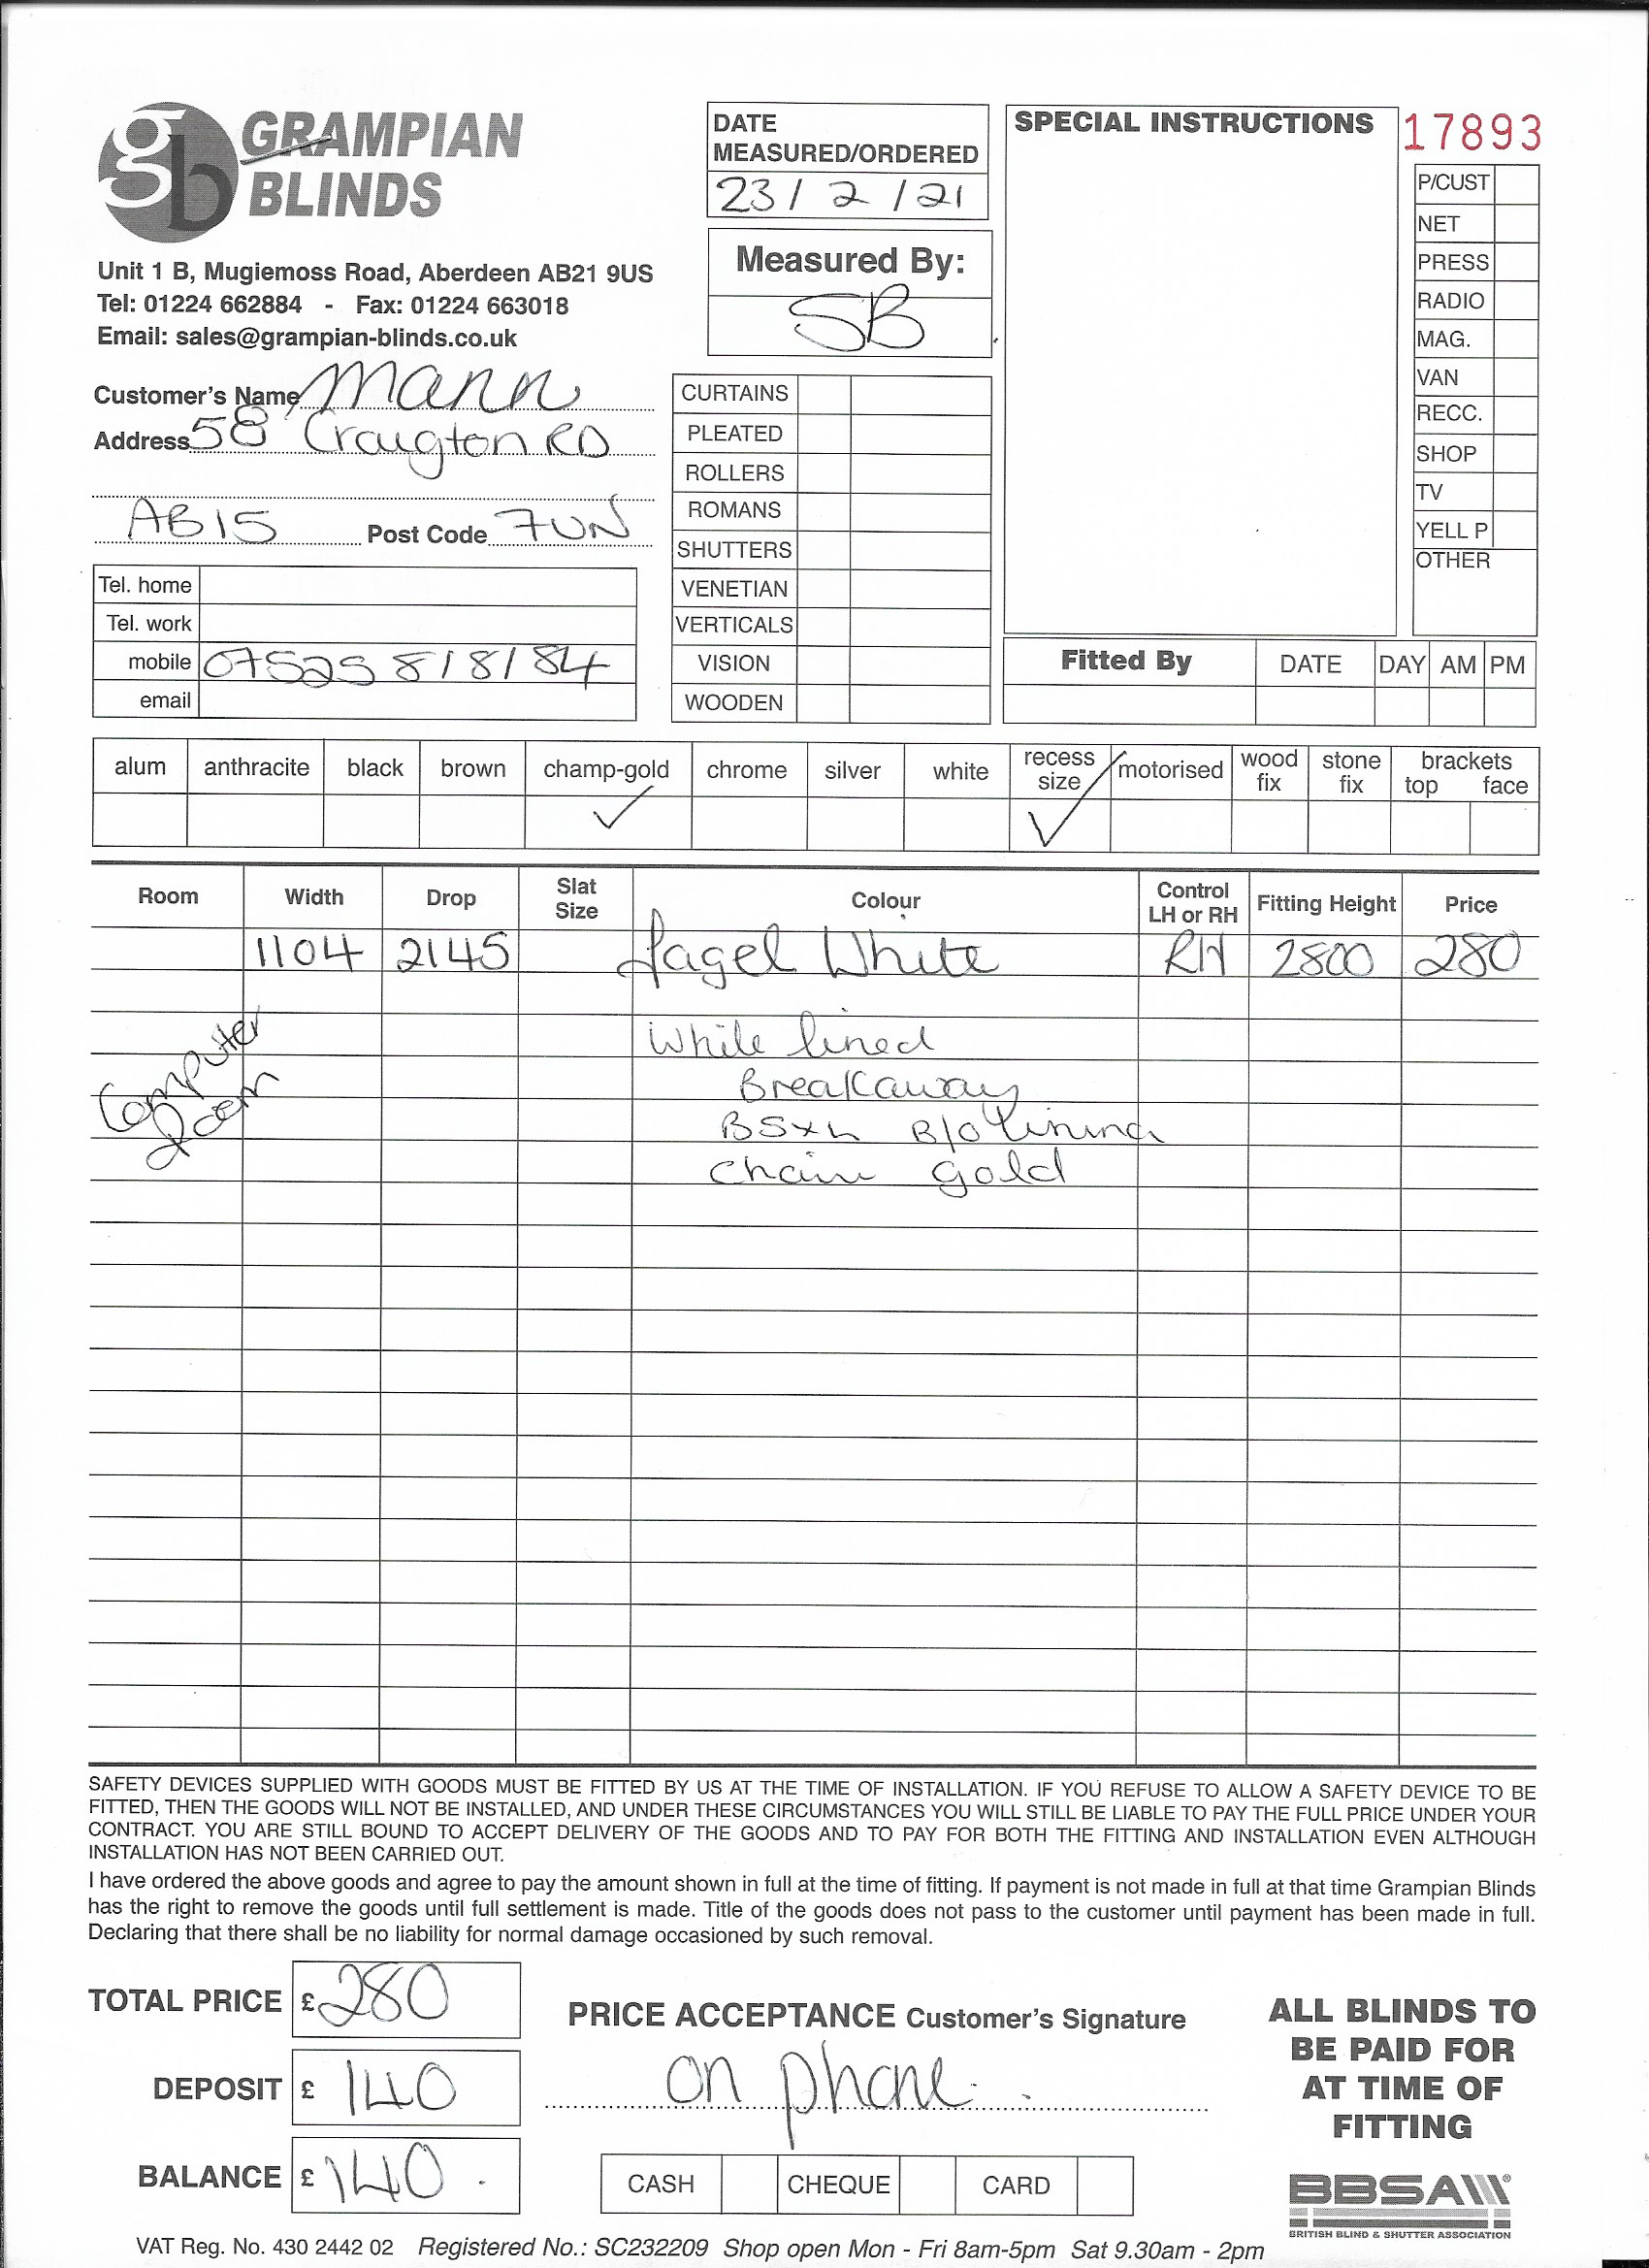 gb GRAMPIAN
BLINDS
Unit 1 B, Mugiemoss Road, Aberdeen AB21 9US
Tel: 01224 662884 - Fax: 01224 663018
Email: sales@grampian-blinds.co.uk
Customer's Name Mann
Address 58 Craigton RD
AB15 Post Code 7UN
Tel. home
Tel. work
mobile 07525 818184
email
DATE
MEASURED/ORDERED
23 / 2 / 21
Measured By:
SB
CURTAINS
PLEATED
ROLLERS
ROMANS
SHUTTERS
VENETIAN
VERTICALS
VISION
WOODEN
SPECIAL INSTRUCTIONS
17893
P/CUST
NET
PRESS
RADIO
MAG.
VAN
RECC.
SHOP
TV
YELL P
OTHER
Fitted By DATE DAY AM PM
alum anthracite black brown champ-gold chrome silver white recess size motorised wood fix stone fix brackets top face
✓ ✓
Room Width Drop Slat Size Colour Control LH or RH Fitting Height Price
1104 2145 White RH 2800 280
Computer
Room
White lined
Breakaway
B/O Lining
Chain gold
SAFETY DEVICES SUPPLIED WITH GOODS MUST BE FITTED BY US AT THE TIME OF INSTALLATION. IF YOU REFUSE TO ALLOW A SAFETY DEVICE TO BE
FITTED, THEN THE GOODS WILL NOT BE INSTALLED, AND UNDER THESE CIRCUMSTANCES YOU WILL STILL BE LIABLE TO PAY THE FULL PRICE UNDER YOUR
CONTRACT. YOU ARE STILL BOUND TO ACCEPT DELIVERY OF THE GOODS AND TO PAY FOR BOTH THE FITTING AND INSTALLATION EVEN ALTHOUGH
INSTALLATION HAS NOT BEEN CARRIED OUT.
I have ordered the above goods and agree to pay the amount shown in full at the time of fitting. If payment is not made in full at that time Grampian Blinds
has the right to remove the goods until full settlement is made. Title of the goods does not pass to the customer until payment has been made in full.
Declaring that there shall be no liability for normal damage occasioned by such removal.
TOTAL PRICE £ 280
DEPOSIT £ 140
BALANCE £ 140.
PRICE ACCEPTANCE Customer's Signature
on phone.
CASH CHEQUE CARD
ALL BLINDS TO
BE PAID FOR
AT TIME OF
FITTING
BBSA
BRITISH BLIND & SHUTTER ASSOCIATION
VAT Reg. No. 430 2442 02 Registered No.: SC232209 Shop open Mon - Fri 8am-5pm Sat 9.30am - 2pm